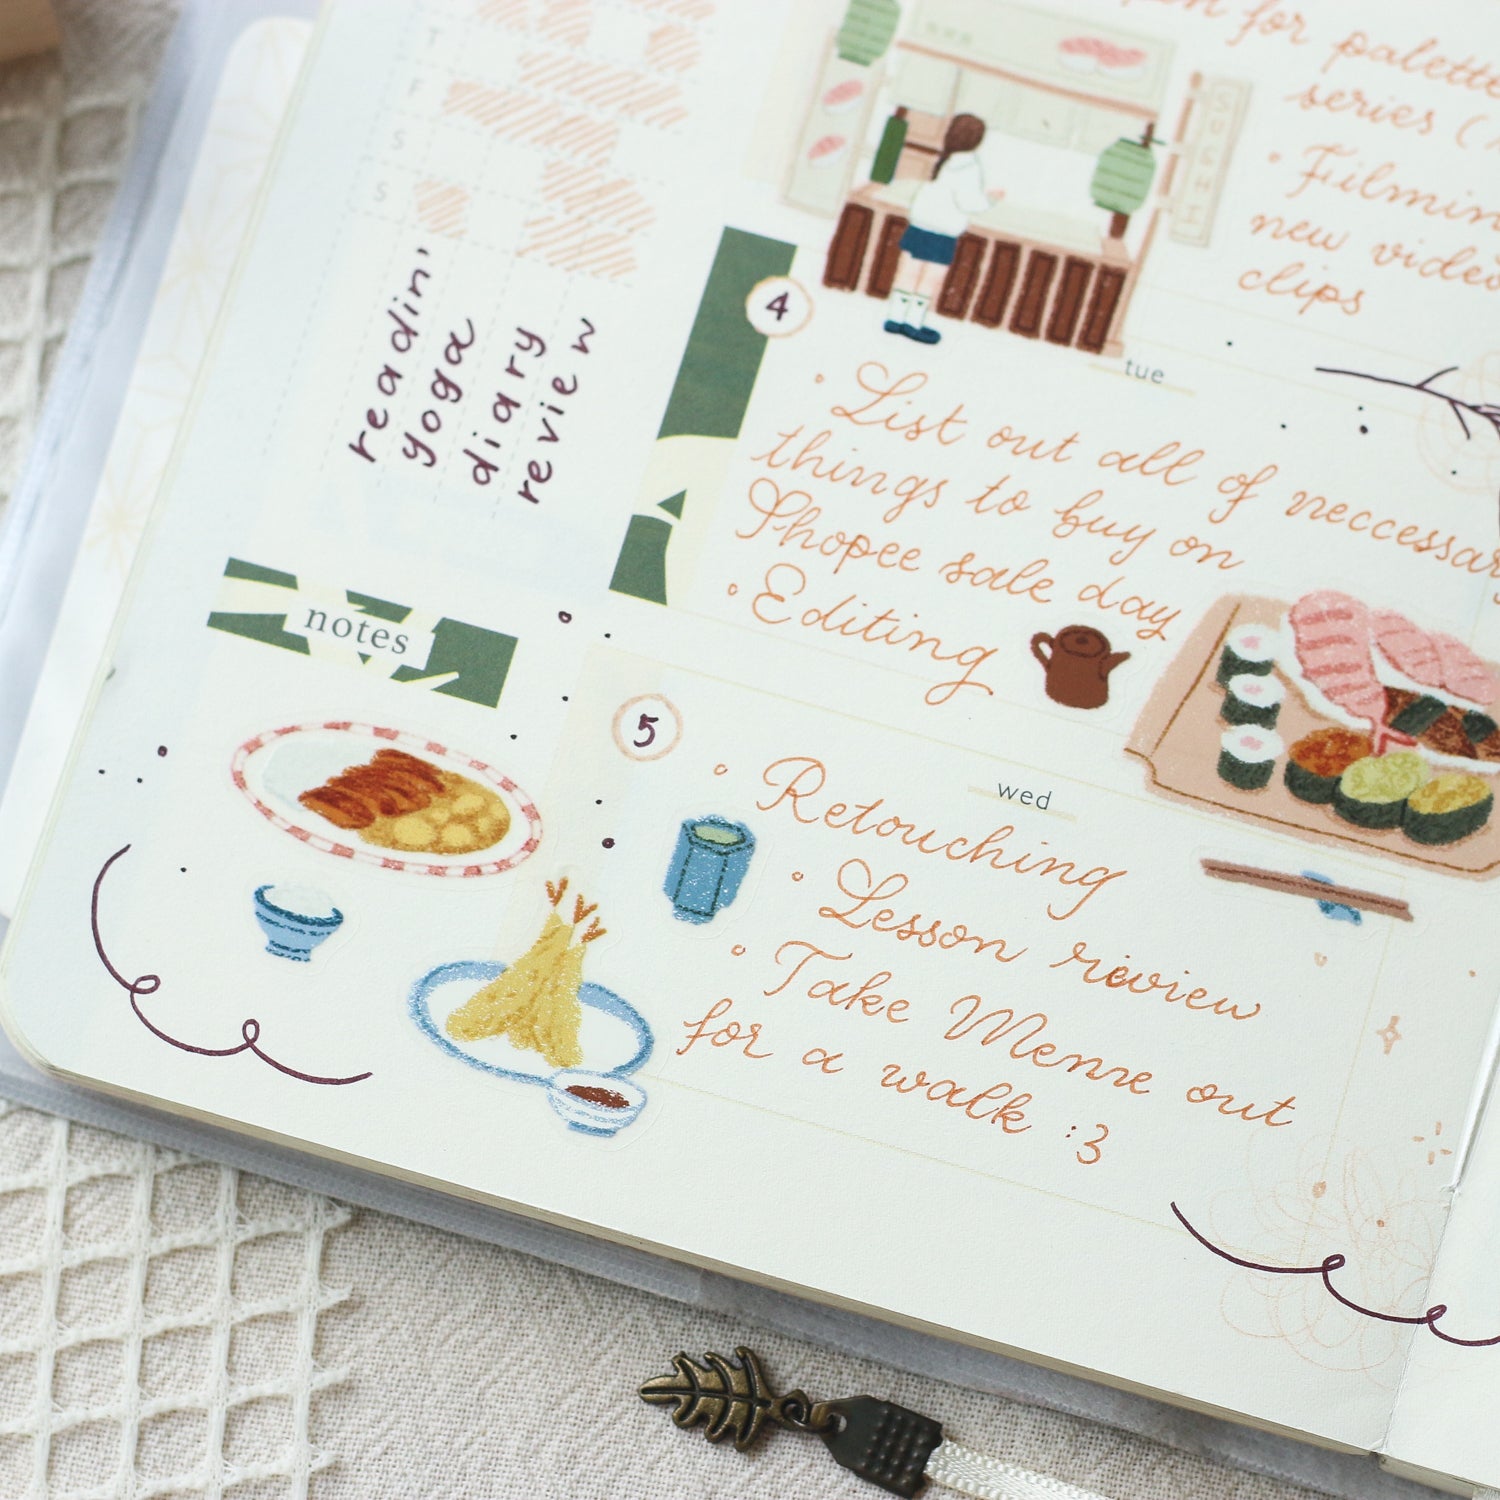 for palette
series (
• Filming
new video
clips
SUSHI
T
F
S
S
readin'
yoga
diary
review
4
tue
• List out all of neccessary
things to buy on
Shopee sale day
• Editing
notes
5
wed
• Retouching
• Lesson review
• Take Menne out
for a walk :3